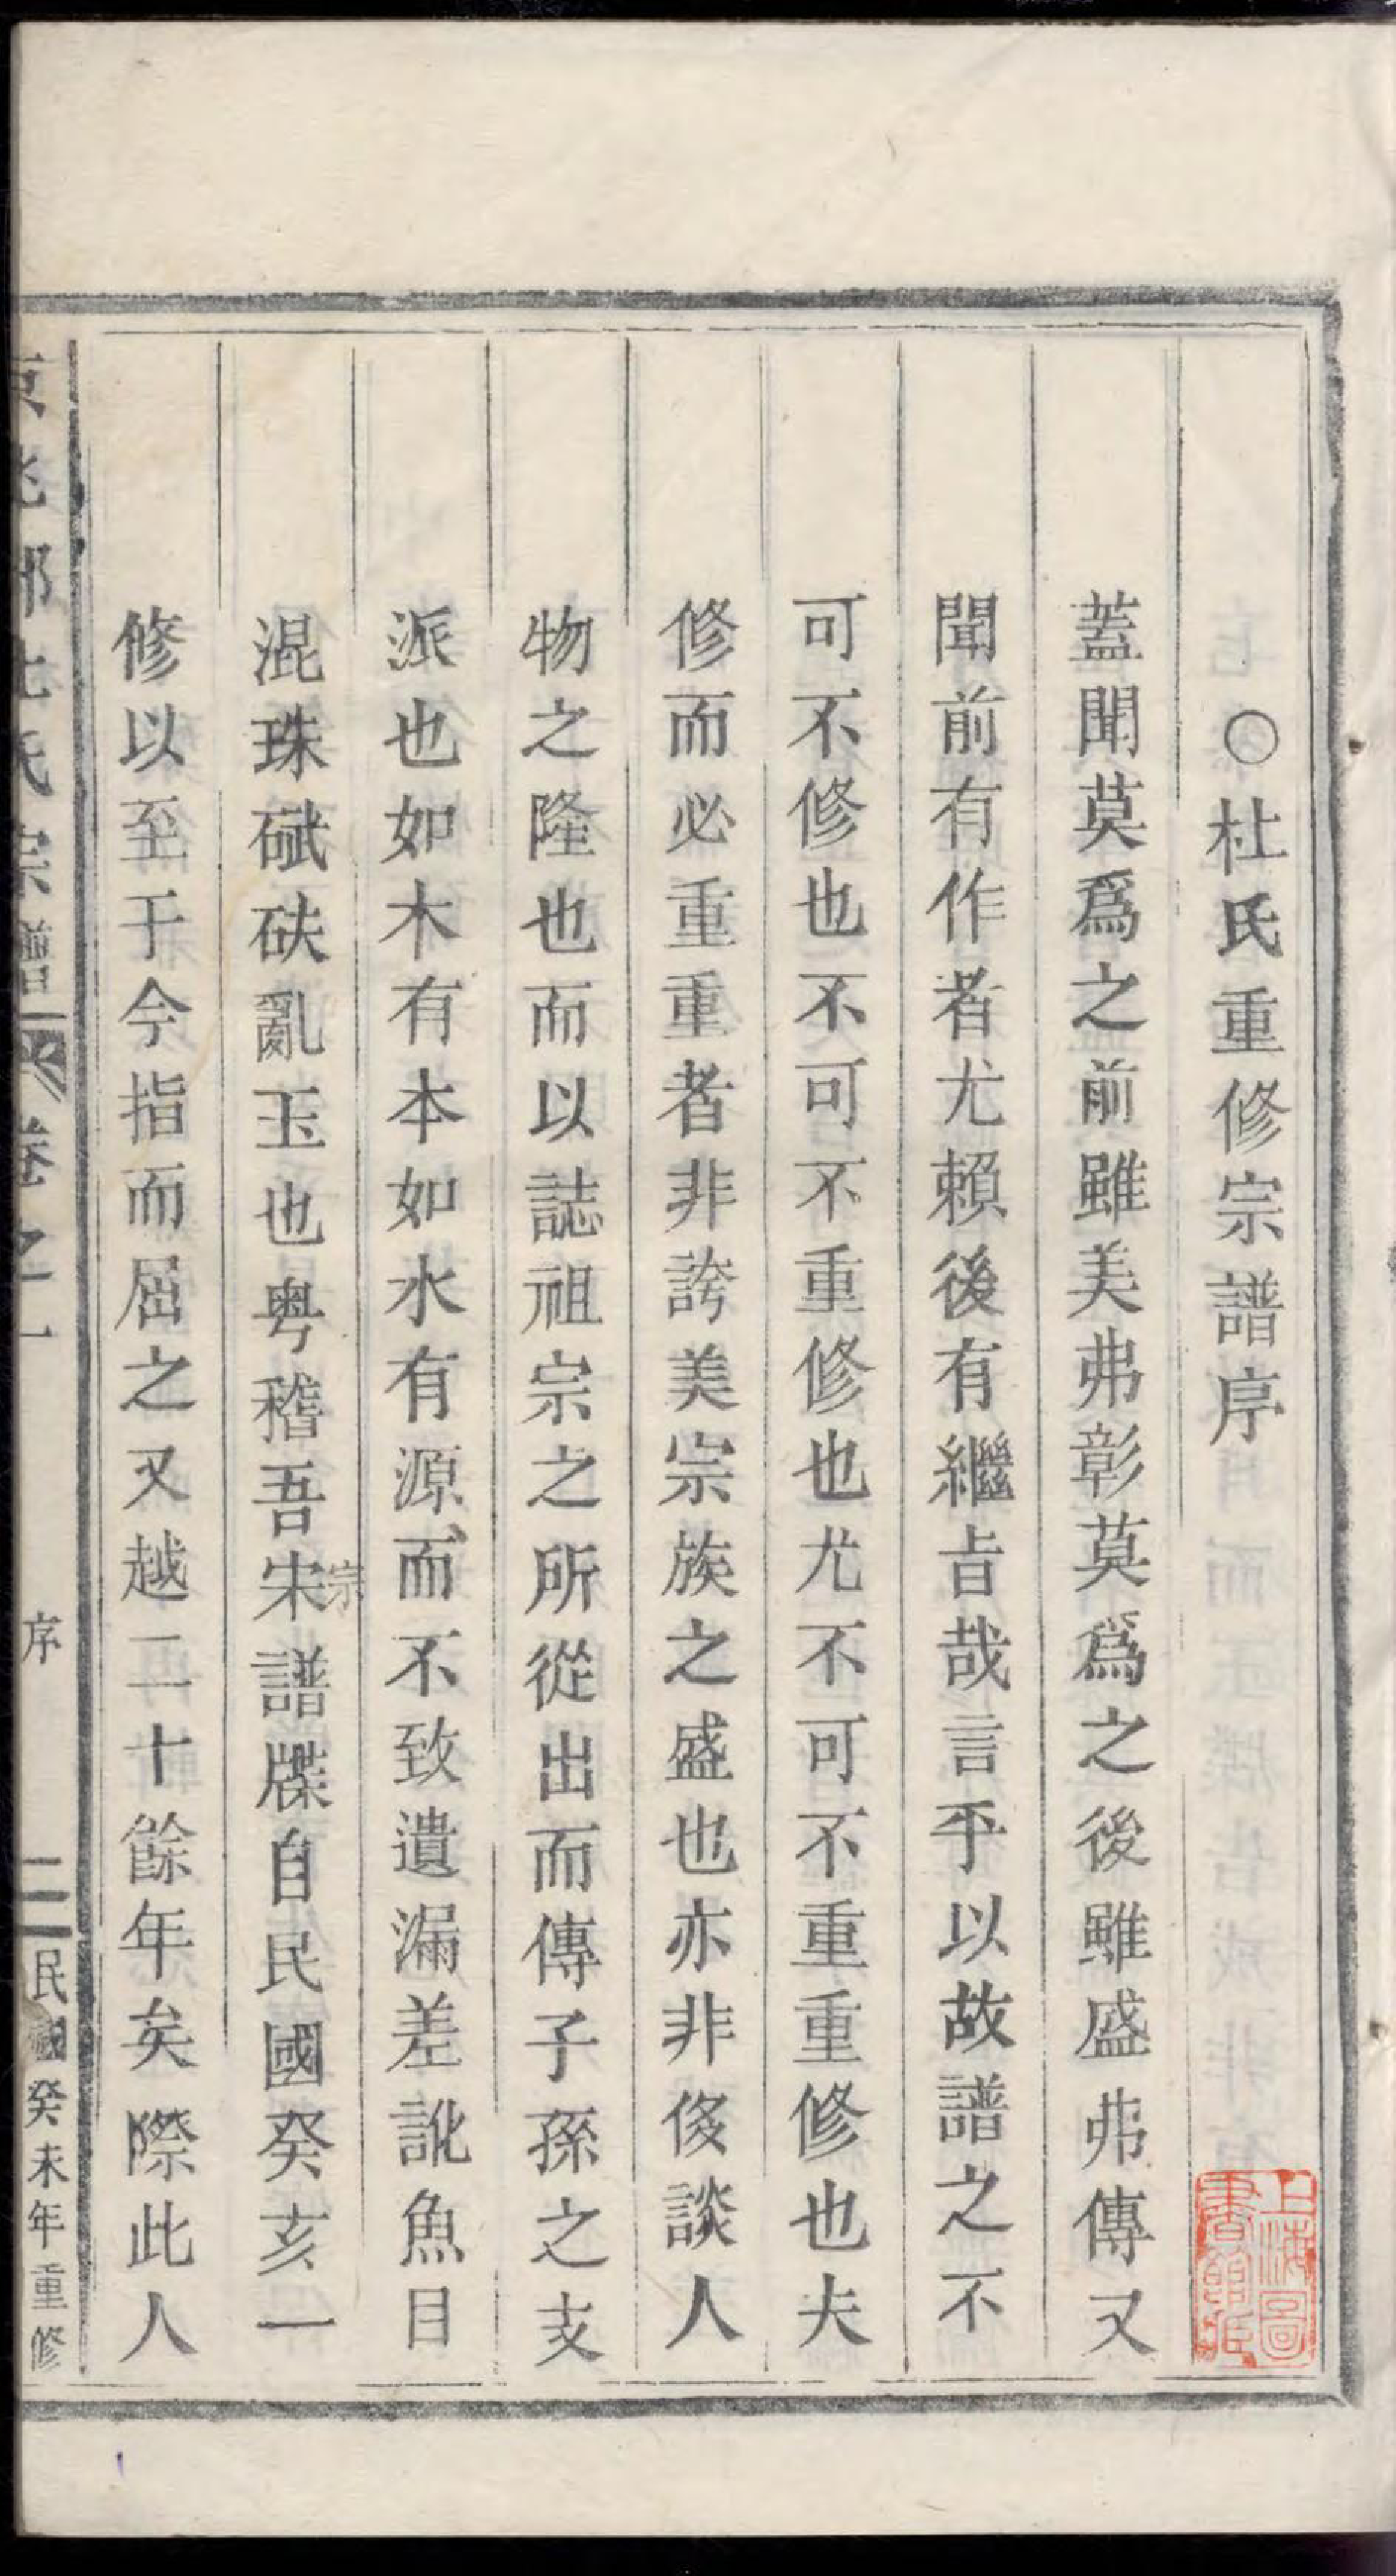 ○杜氏重修宗譜序
蓋聞莫爲之前雖美弗彰莫爲之後雖盛弗傳又
聞前有作者尤賴後有繼旨哉言乎以故譜之不
可不修也不可不重修也尤不可不重重修也夫
修而必重重者非誇美宗族之盛也亦非侈談人
物之隆也而以誌祖宗之所從出而傳子孫之支
派也如木有本如水有源而不致遺漏差訛魚目
混珠碔砆亂玉也粤稽吾宋譜牒自民國癸亥一
宗
修以至于今指而屈之又越二十餘年矣際此人
京兆郡杜氏宗譜 卷之一 序 二 民國癸未年重修
上海圖書館藏